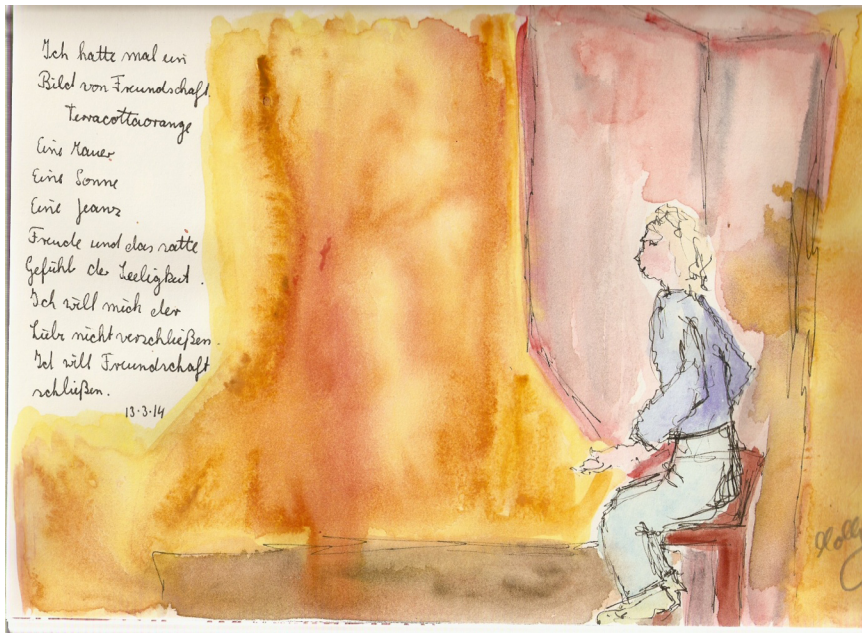 Ich hatte mal ein
Bild von Freundschaft.
Terracottaorange
Eine Mauer
Eine Sonne
Eine Jeans
Freude und das satte
Gefühl der Seeligkeit.
Ich will mich der
Liebe nicht verschließen.
Ich will Freundschaft
schließen.
13.3.14